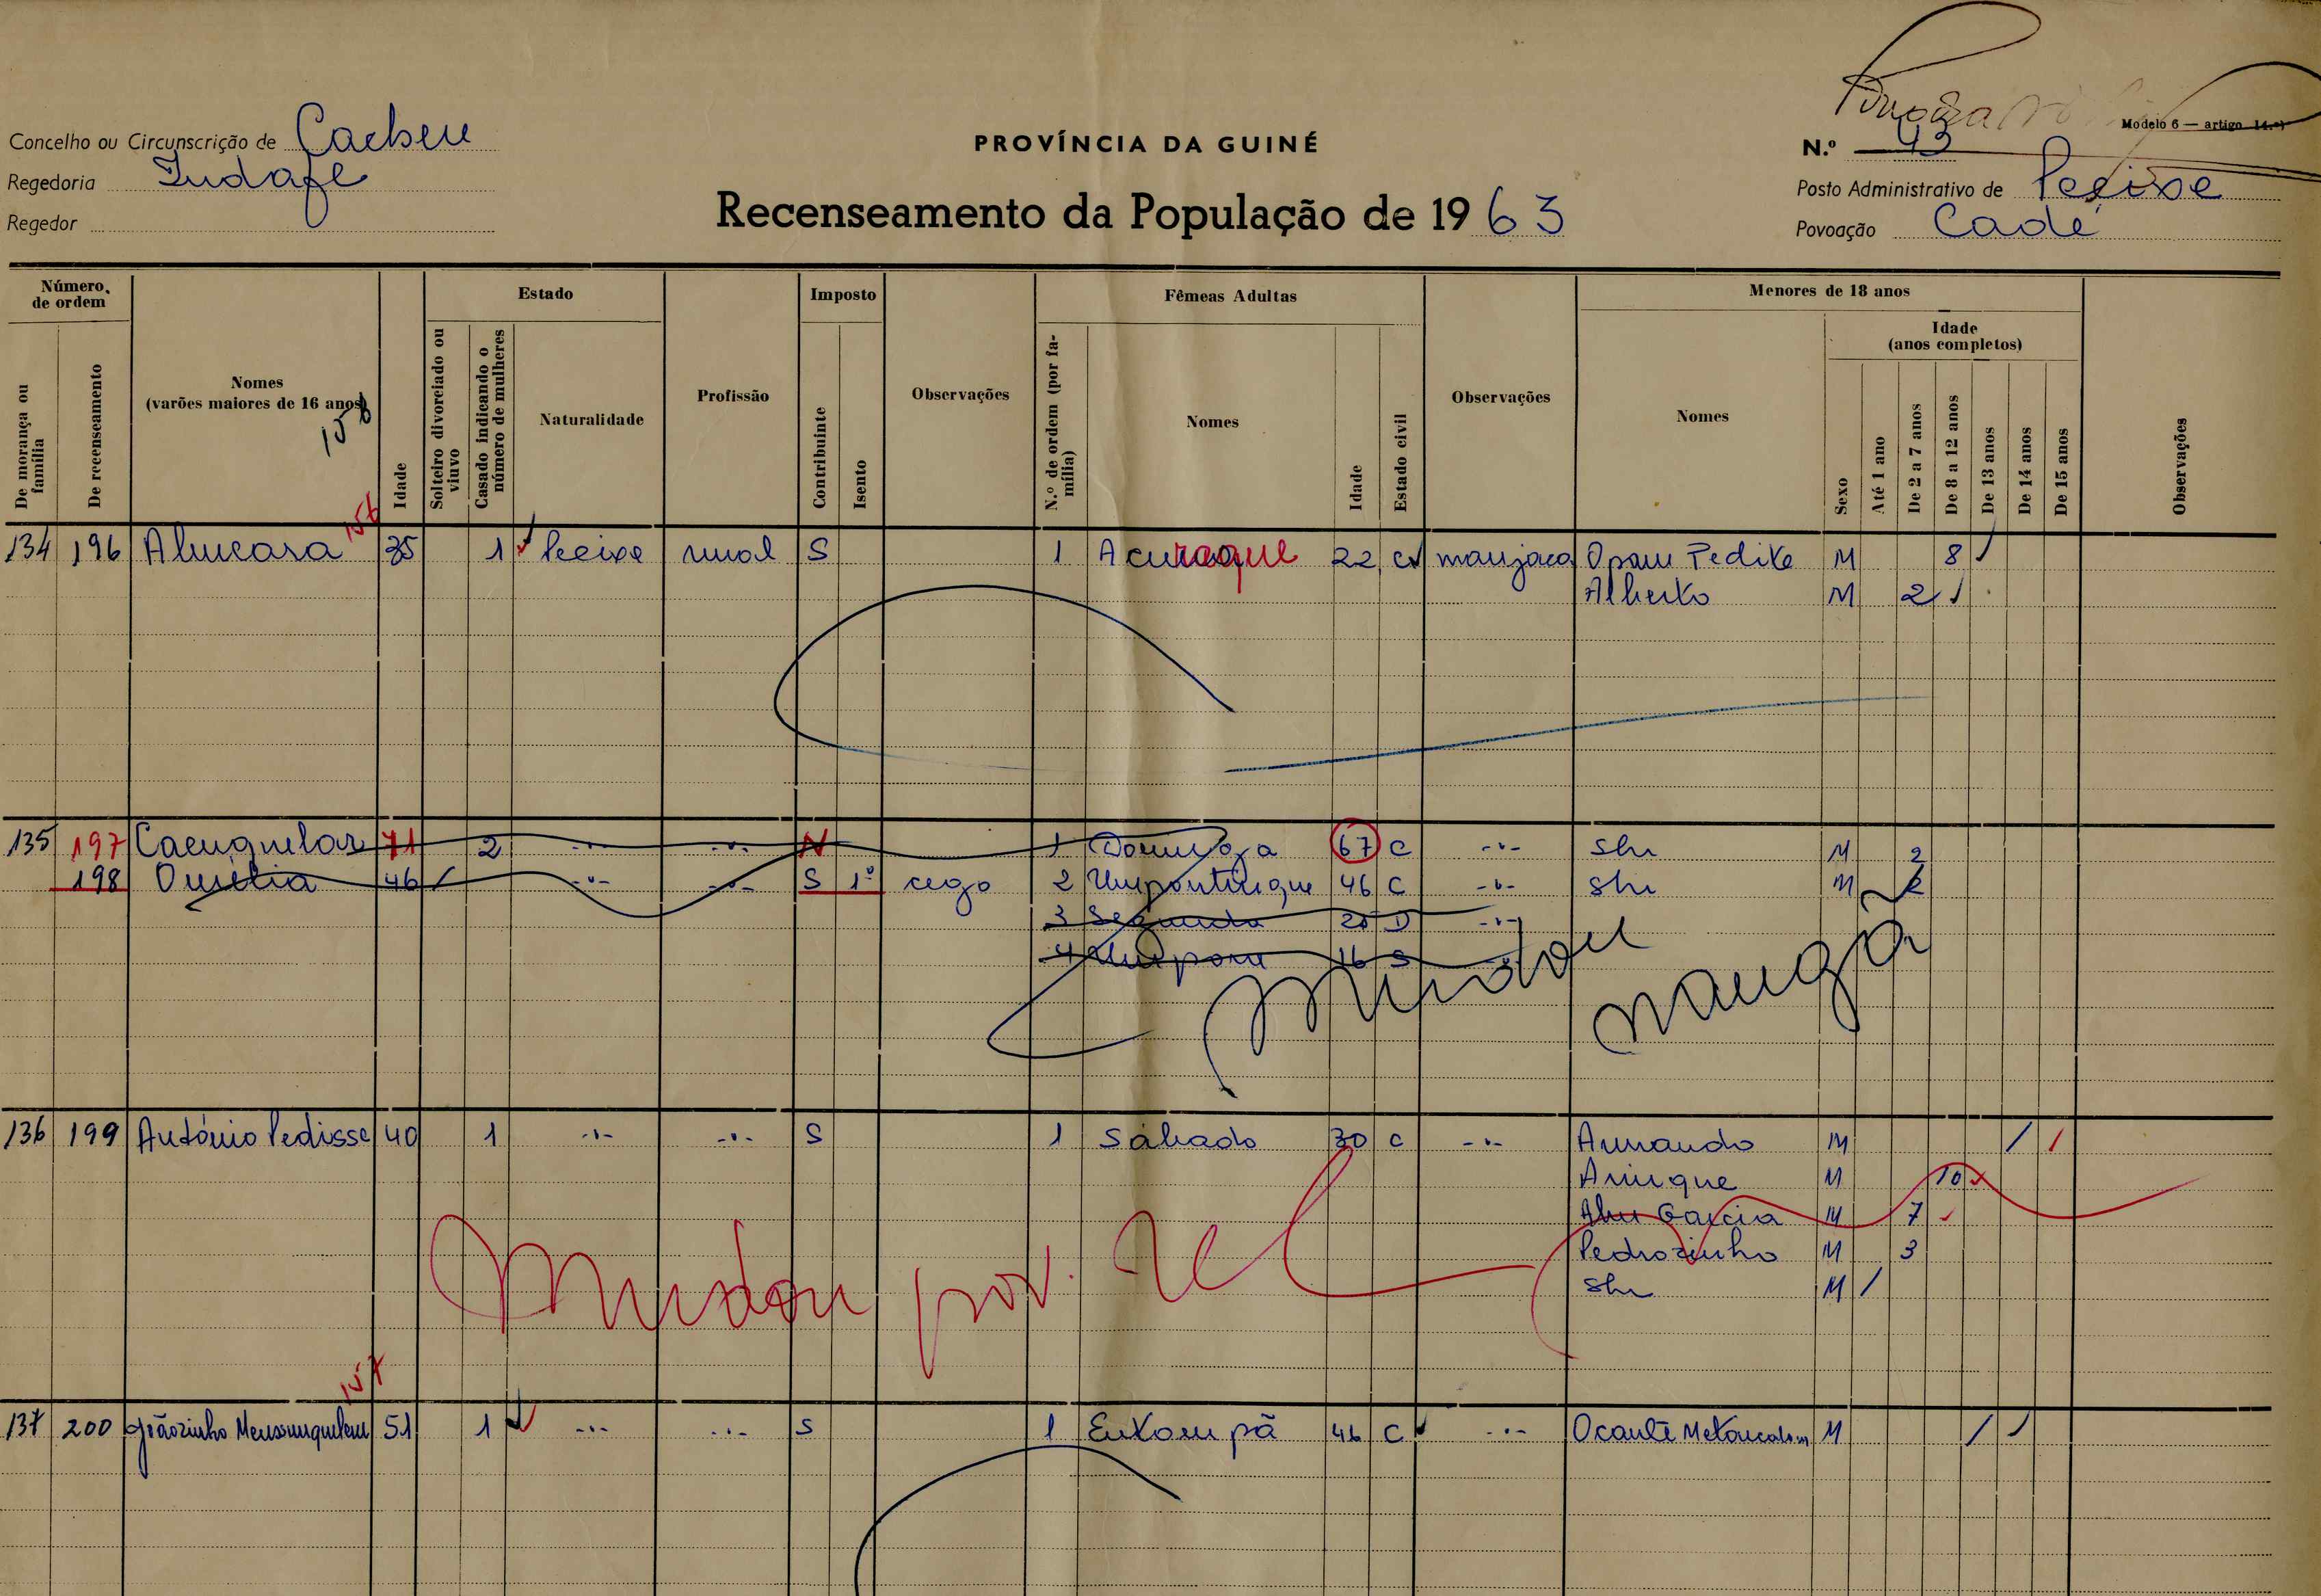 Modelo 6 — artigo 14.º)
Concelho ou Circunscrição de Cacheu
PROVÍNCIA DA GUINÉ
N.º 43
Regedoria
Posto Administrativo de Pecixe
Recenseamento da População de 1963
Regedor
Povoação Cadé
Número de ordem
Estado
Imposto
Fêmeas Adultas
Menores de 18 anos
Idade
(anos completos)
De morança ou família
De recenseamento
Nomes
(varões maiores de 16 anos)
158
Idade
Solteiro divorciado ou viuvo
Casado indicando o número de mulheres
Naturalidade
Profissão
Contribuinte
Isento
Observações
N.º de ordem (por família)
Nomes
Idade
Estado civil
Observações
Nomes
Sexo
Até 1 ano
De 2 a 7 anos
De 8 a 12 anos
De 13 anos
De 14 anos
De 15 anos
Observações
156
134 196 35 1 Pecixe rural S 1 22 C manjaca M 8
Alberto M 2
135 197 71 2 -"- -"- N 1 67 C -"- M 2
198 46 -"- -"- S 1º cego 2 46 C -"- M 2
3 Segunda D -"-
4 16 S
Mudou
136 199 António Pedisse 40 1 -"- -"- S 1 Sábado 30 C -"- Armando M /
Arinque M 10
Garcia M 7
Pedrozinho M 3
M /
Mudou pov.
157
137 200 51 1 -"- -"- S 1 46 C -"- M /